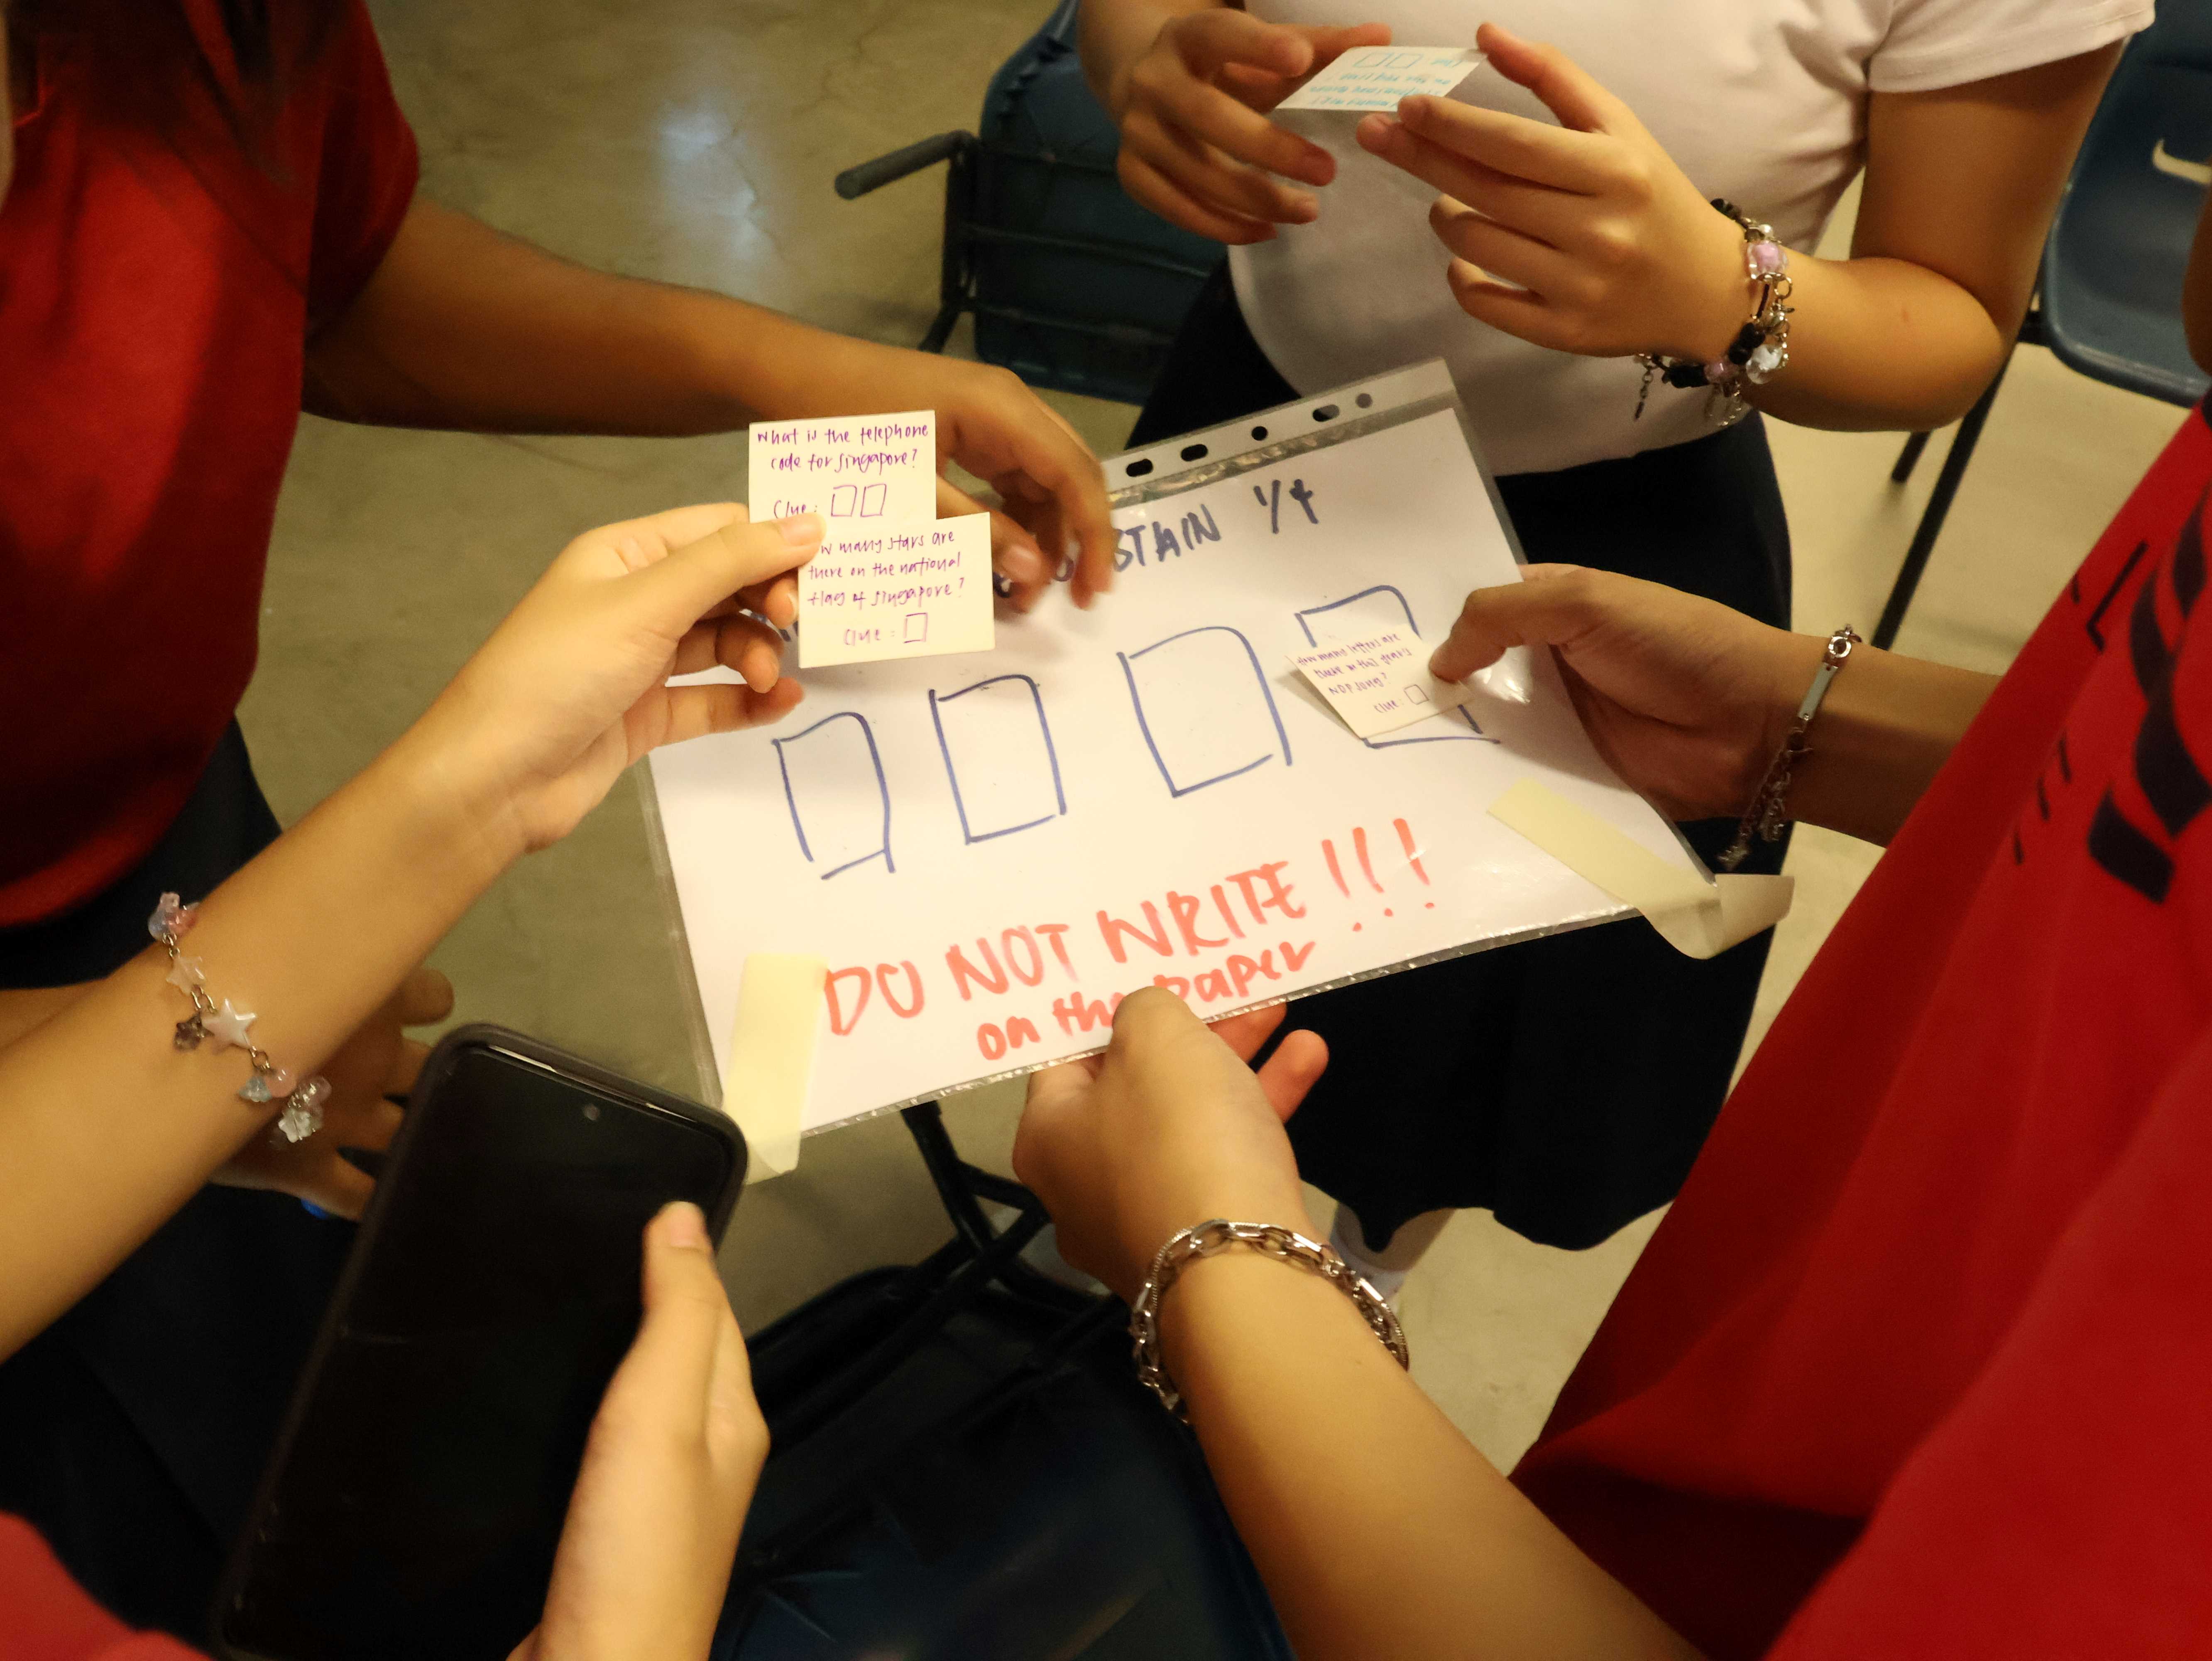 What is the telephone
code for Singapore?
Clue:
many stars are
there on the national
flag of Singapore?
Clue:
BTAIN 1/4
How many letters are
there in this year's
NDP song?
Clue:
DO NOT WRITE!!!
on the paper